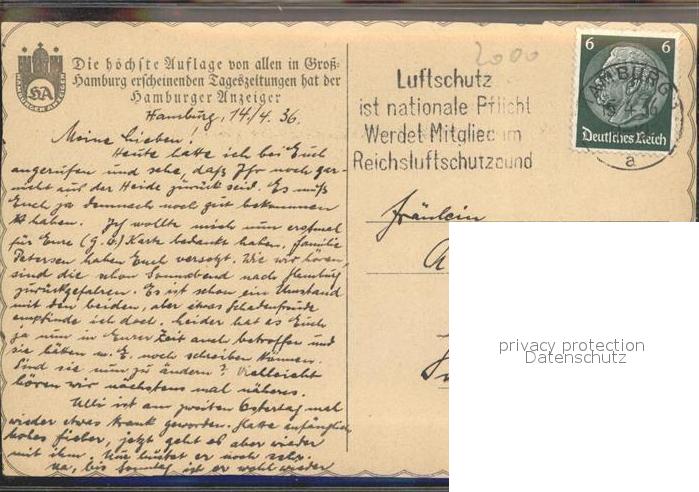 Die höchste Auflage von allen in Groß-
Hamburg erscheinenden Tageszeitungen hat der
Hamburger Anzeiger
HA
Hamburg, 14./4. 36.
Meine Lieben!
Heute hatte ich bei Euch
angerufen und sehe, daß Ihr noch gar-
nicht aus der Heide zurück seid. Es muß
Euch ja demnach noch gut bekommen
haben. Ich wollte mich nun erstmal
für Eure (G. O.) Karte bedankt haben. Familie
Petersen haben Euch versetzt. Wie wir hören,
sind die schon Sonnabend nach Hamburg
zurückgefahren. Es ist schon ein Umstand
mit den beiden, aber etwas Schadenfreude
empfinde ich doch. Leider hat es Euch
ja nun in Eurer Zeit auch betroffen und
sie hätten m. E. noch schreiben können.
Sind sie nun zu ändern? Vielleicht
hören wir nächstens mal näheres.
Ulli ist am zweiten Ostertag mal
wieder etwas krank geworden. Hatte anfänglich
hohes Fieber, jetzt geht es aber wieder
mit ihm. Nur hustet er noch sehr.
Na, bis Sonntag ist er wohl wieder
2000
Luftschutz
ist nationale Pflicht
Werdet Mitglied im
Reichsluftschutzbund
6 6
Deutsches Reich
HAMBURG
4.36
a
Fräulein
privacy protection
Datenschutz